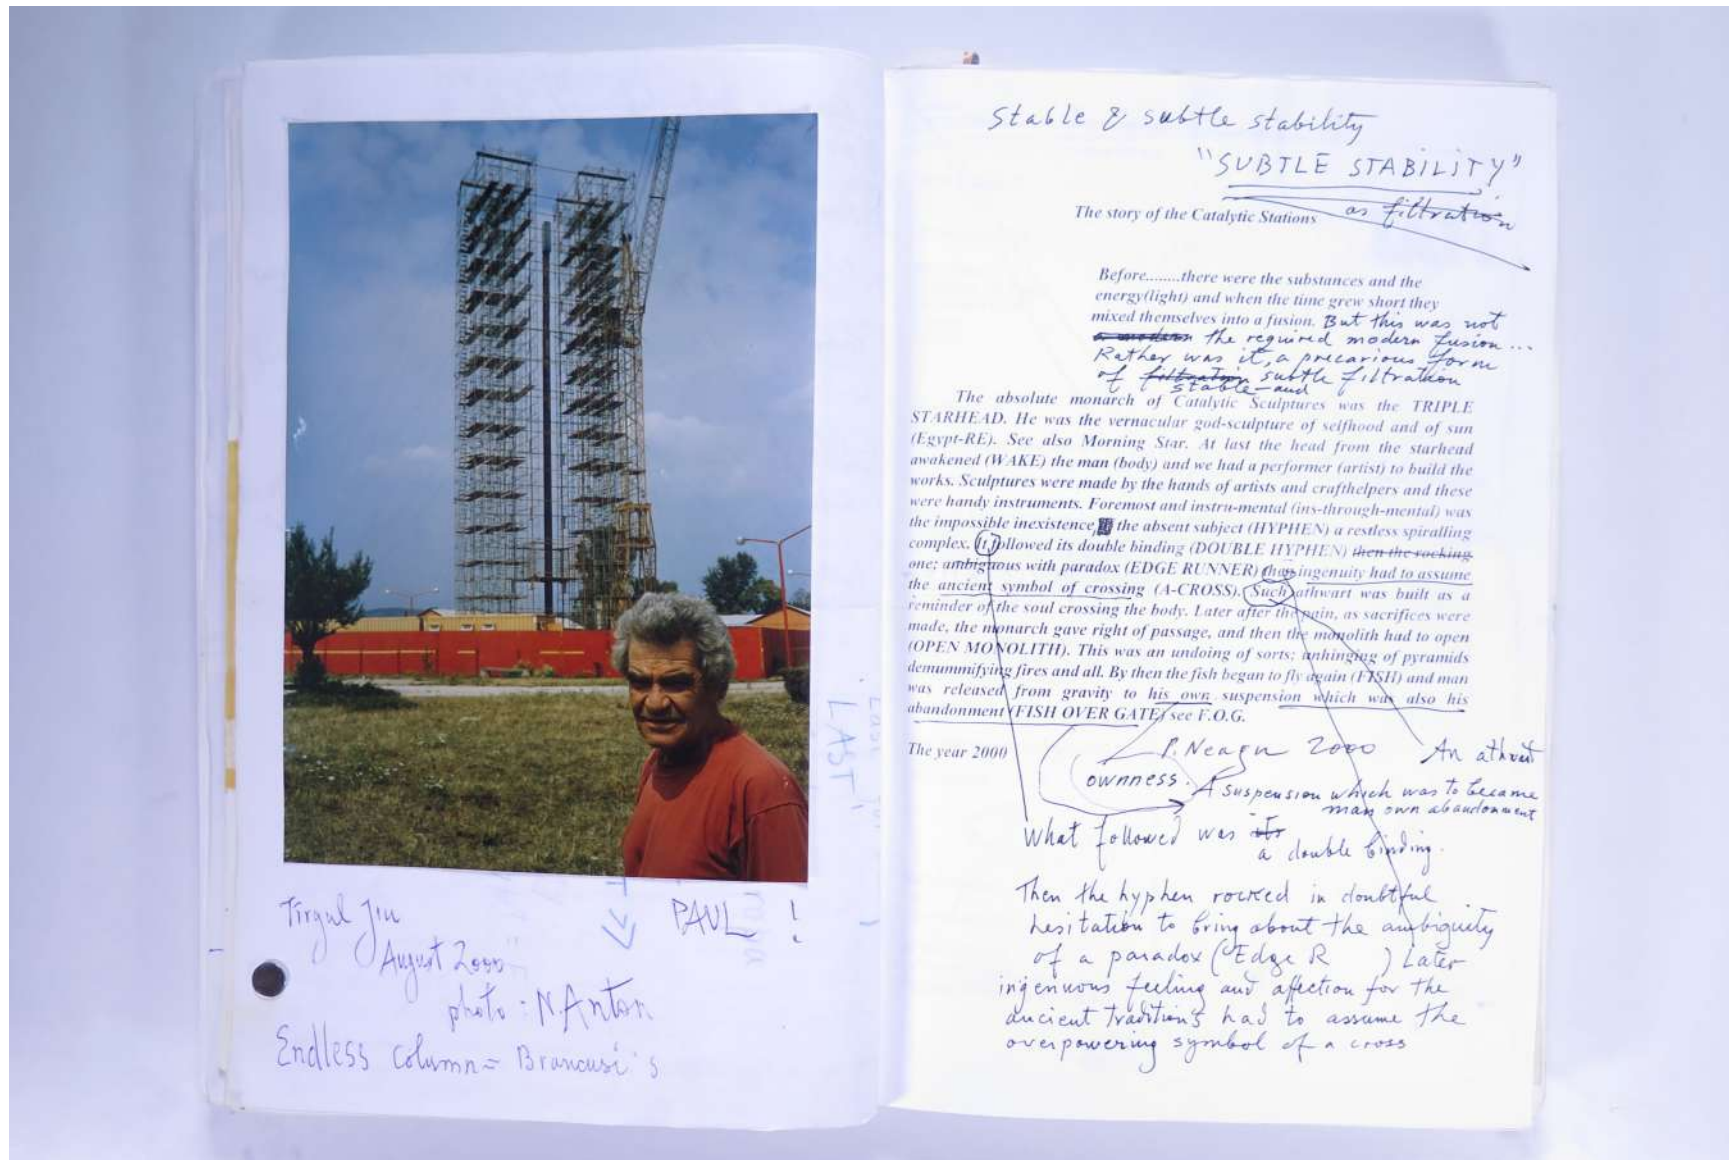 Tirgul Jiu
August 2000
PAUL !
photo : N. Anton
Endless column = Brancusi's
LAST
Stable & subtle stability
"SUBTLE STABILITY"
The story of the Catalytic Stations as filtration
Before........there were the substances and the
energy(light) and when the time grew short they
mixed themselves into a fusion. But this was not
a modern the required modern fusion...
Rather was it, a precarious form
of filtration subtle filtration
stable and
The absolute monarch of Catalytic Sculptures was the TRIPLE
STARHEAD. He was the vernacular god-sculpture of selfhood and of sun
(Egypt-RE). See also Morning Star. At last the head from the starhead
awakened (WAKE) the man (body) and we had a performer (artist) to build the
works. Sculptures were made by the hands of artists and crafthelpers and these
were handy instruments. Foremost and instru-mental (ins-through-mental) was
the impossible inexistence, the absent subject (HYPHEN) a restless spiralling
complex. It followed its double binding (DOUBLE HYPHEN) then the rocking
one; ambiguous with paradox (EDGE RUNNER) thus ingenuity had to assume
the ancient symbol of crossing (A-CROSS). Such athwart was built as a
reminder of the soul crossing the body. Later after the pain, as sacrifices were
made, the monarch gave right of passage, and then the monolith had to open
(OPEN MONOLITH). This was an undoing of sorts; unhinging of pyramids
demummifying fires and all. By then the fish began to fly again (FISH) and man
was released from gravity to his own suspension which was also his
abandonment (FISH OVER GATE) see F.O.G.
The year 2000
P. Neagu 2000
An athwart
ownness. A suspension which was to became
man own abandonment
What followed was its
a double binding.
Then the hyphen rocked in doubtful
hesitation to bring about the ambiguity
of a paradox ("Edge R ) Later
ingenuous feeling and affection for the
ancient traditions had to assume the
overpowering symbol of a cross